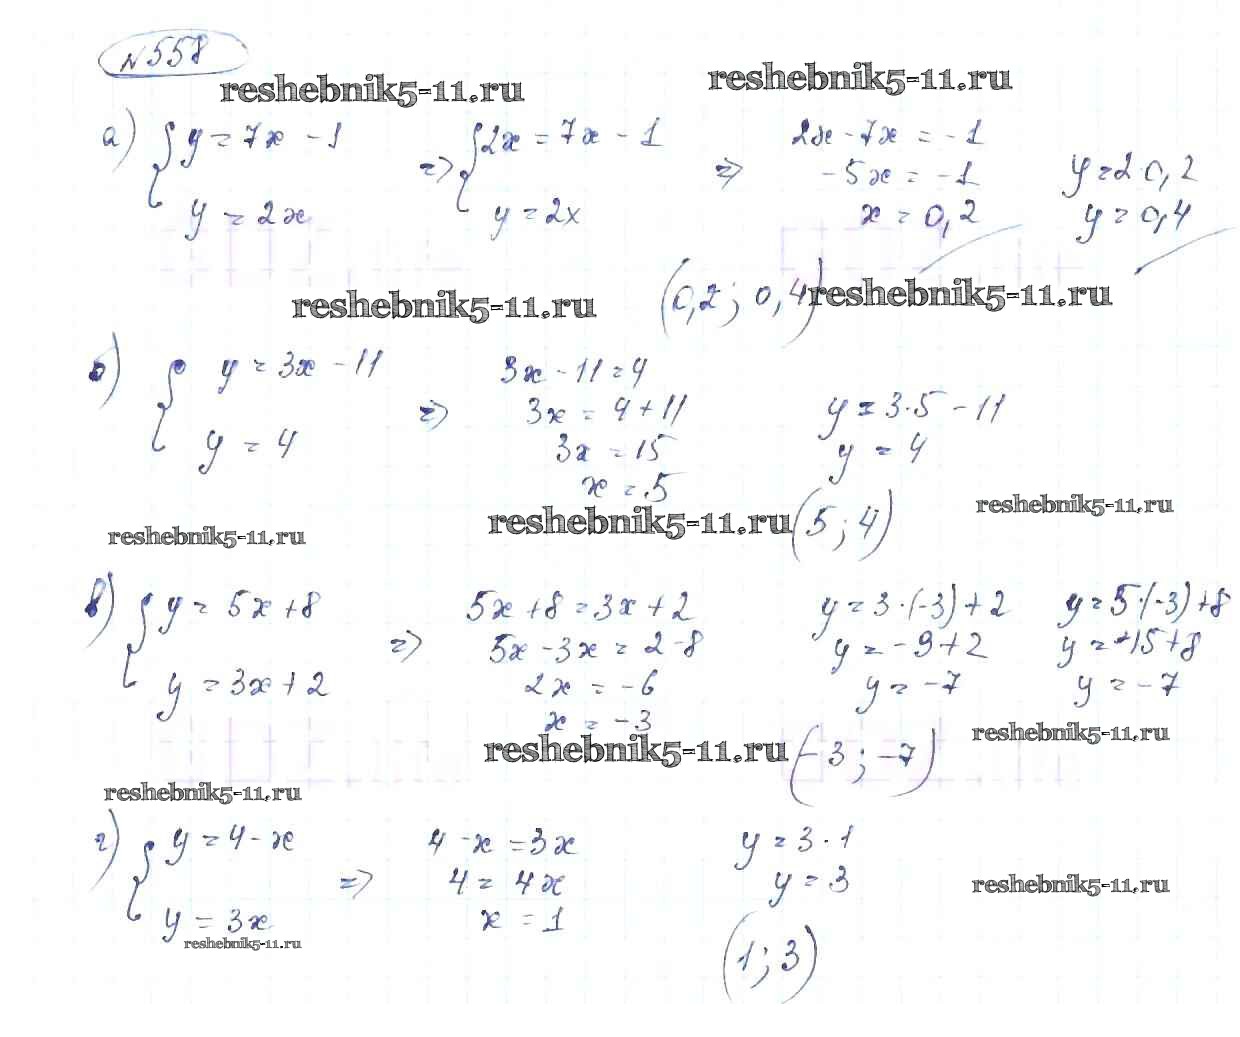 №558
reshebnik5-11.ru reshebnik5-11.ru
а) { y = 7x - 1 => { 2x = 7x - 1 => 2x - 7x = -1
y = 2x y = 2x -5x = -1 y = 2·0,2
x = 0,2 y = 0,4
reshebnik5-11.ru (0,2; 0,4) reshebnik5-11.ru
б) { y = 3x - 11 => 3x - 11 = 4
3x = 4 + 11 y = 3·5 - 11
y = 4 3x = 15 y = 4
x = 5
reshebnik5-11.ru reshebnik5-11.ru (5; 4) reshebnik5-11.ru
в) { y = 5x + 8 => 5x + 8 = 3x + 2 y = 3·(-3) + 2 y = 5·(-3) + 8
5x - 3x = 2 - 8 y = -9 + 2 y = -15 + 8
y = 3x + 2 2x = -6 y = -7 y = -7
x = -3
reshebnik5-11.ru reshebnik5-11.ru (-3; -7) reshebnik5-11.ru
г) { y = 4 - x => 4 - x = 3x y = 3·1
4 = 4x y = 3 reshebnik5-11.ru
y = 3x x = 1
reshebnik5-11.ru (1; 3)